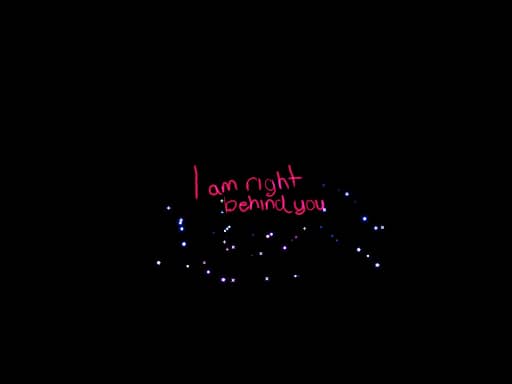 I am right
behind you